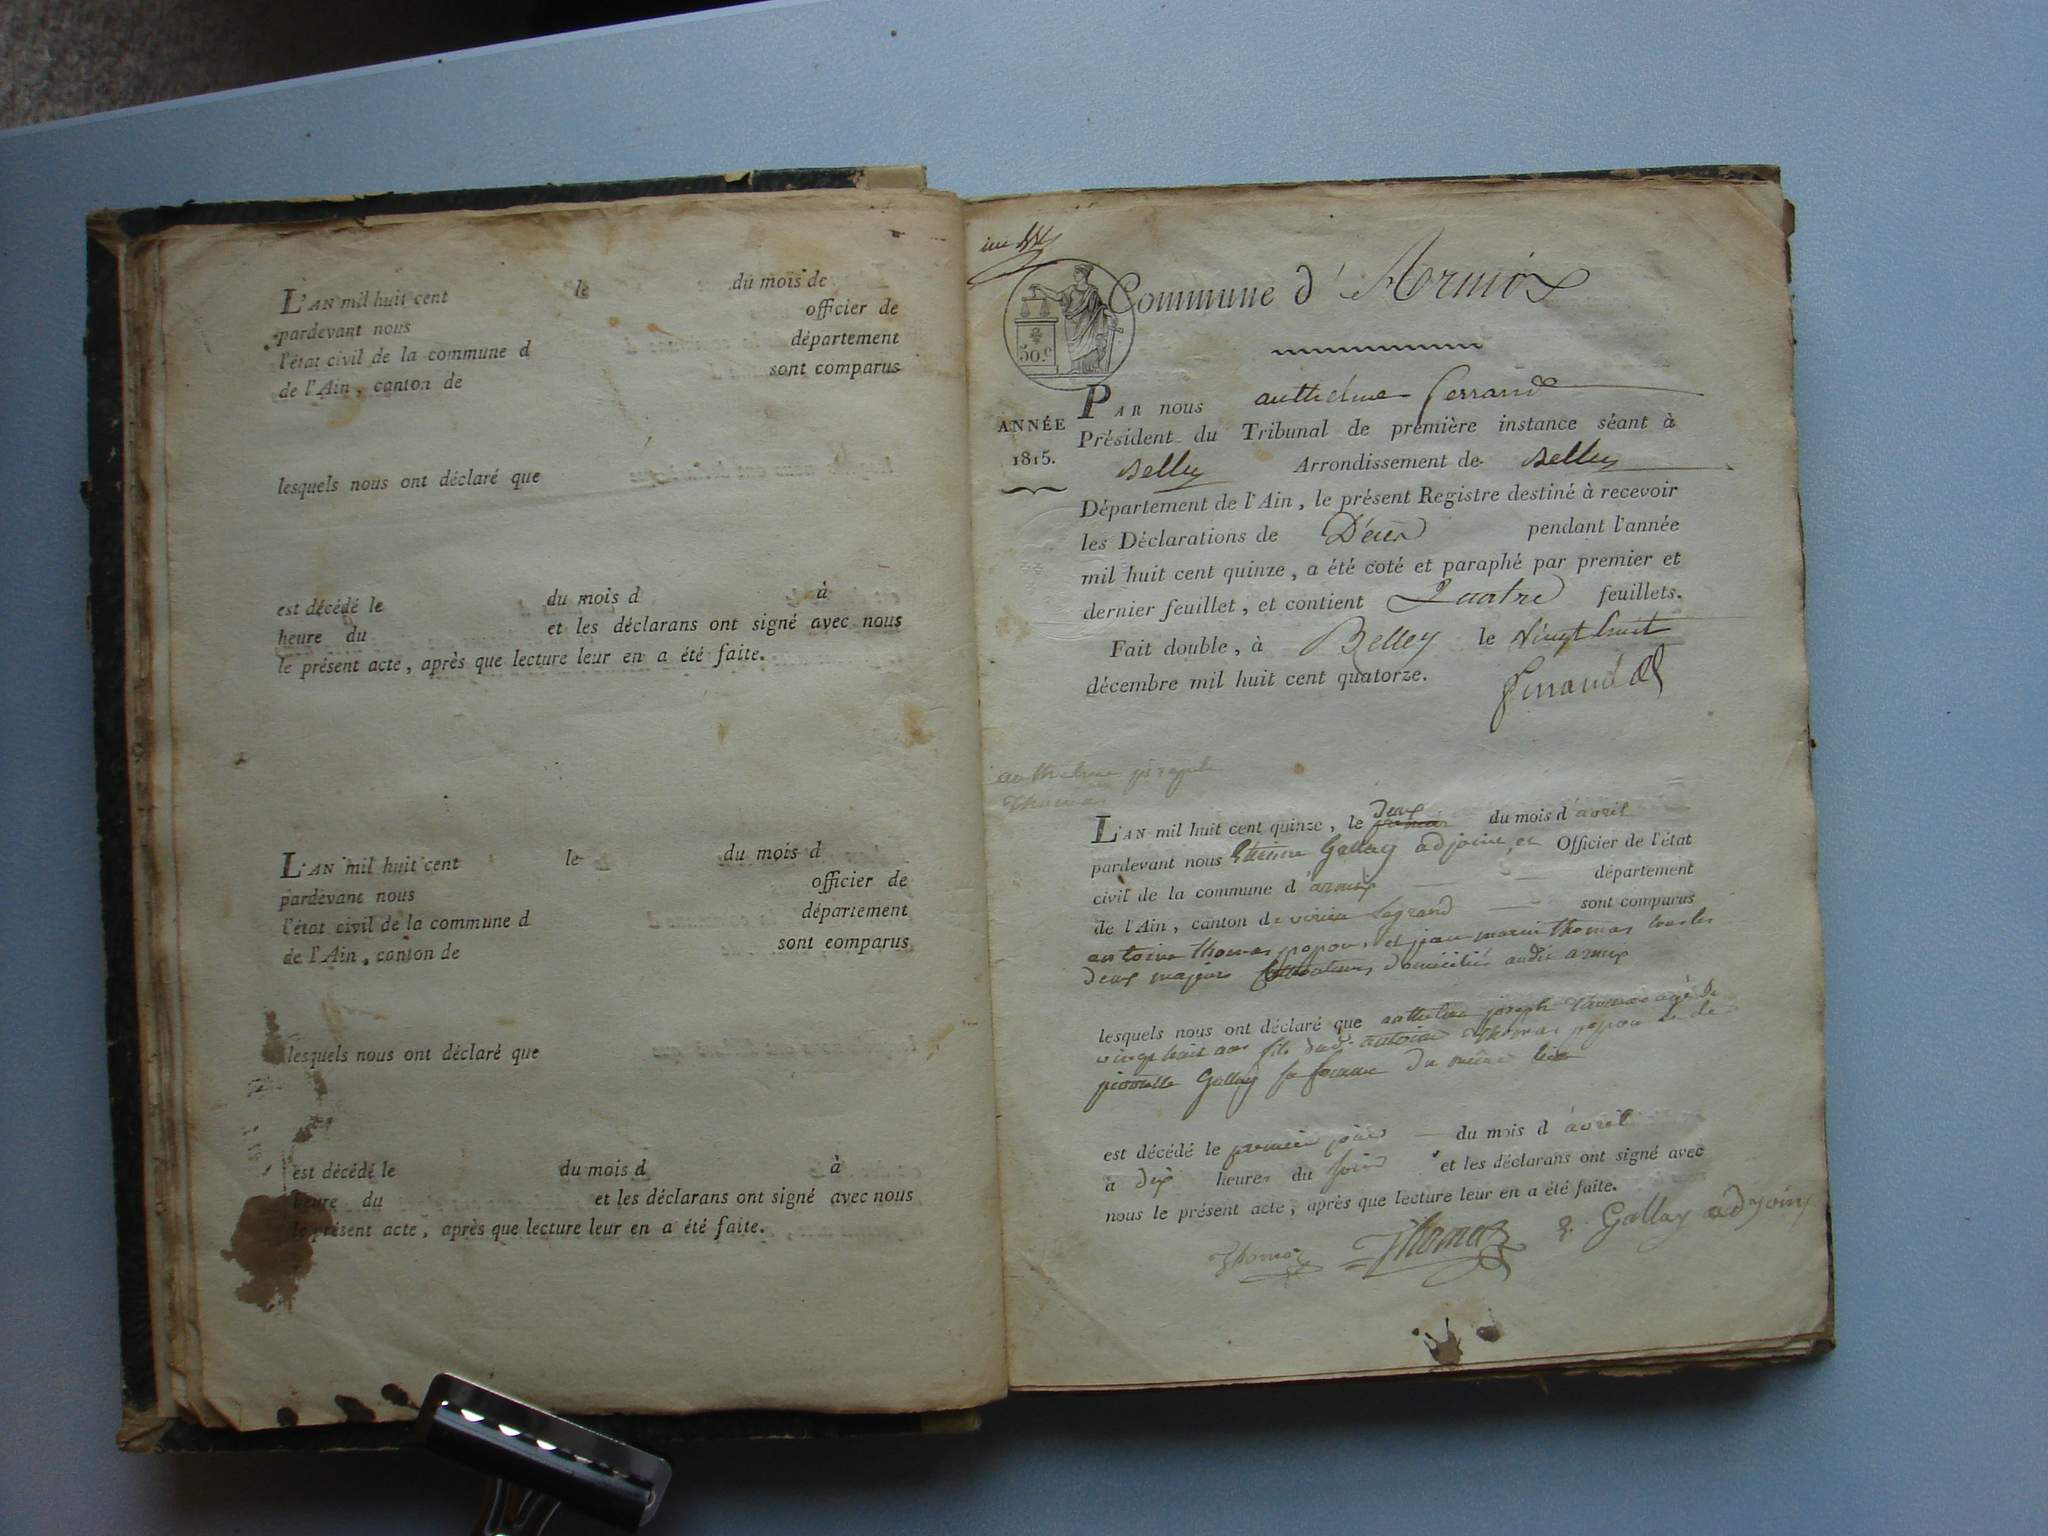 L'AN mil huit cent le du mois de
pardevant nous officier de
l'état civil de la commune d département
de l'Ain, canton de sont comparus
lesquels nous ont déclaré que
est décédé le du mois d à
heure du et les déclarans ont signé avec nous
le présent acte, après que lecture leur en a été faite.
L'AN mil huit cent le du mois d
pardevant nous officier de
l'état civil de la commune d département
de l'Ain, canton de sont comparus
lesquels nous ont déclaré que
est décédé le du mois d à
heure du et les déclarans ont signé avec nous
le présent acte, après que lecture leur en a été faite.
Commune d'Armix
50.c
ANNÉE
1815.
PAR nous anthelme Ferrand
Président du Tribunal de première instance séant à
Belley Arrondissement de Belley
Département de l'Ain, le présent Registre destiné à recevoir
les Déclarations de Décès pendant l'année
mil huit cent quinze, a été coté et paraphé par premier et
dernier feuillet, et contient Quatre feuillets.
Fait double, à Belley le vingt huit
décembre mil huit cent quatorze.
Ferrand
anthelme joseph
Thomas
L'AN mil huit cent quinze, le deux premier du mois d'avril
pardevant nous Etienne Gallay adjoint, et Officier de l'état
civil de la commune d'armix département
de l'Ain, canton de virieu legrand sont comparus
antoine thomas popou, et jean marie thomas tous les
deux majeurs domiciliés audit armix
lesquels nous ont déclaré que anthelme joseph Thomas agé de
vingt huit ans fils dud. antoine Thomas popou et de
pierrette Gallay sa femme du même lieu
est décédé le premier jour du mois d'avril
à dix heures du soir et les déclarans ont signé avec
nous le présent acte, après que lecture leur en a été faite.
Thomas Thomas E. Gallay adjoint